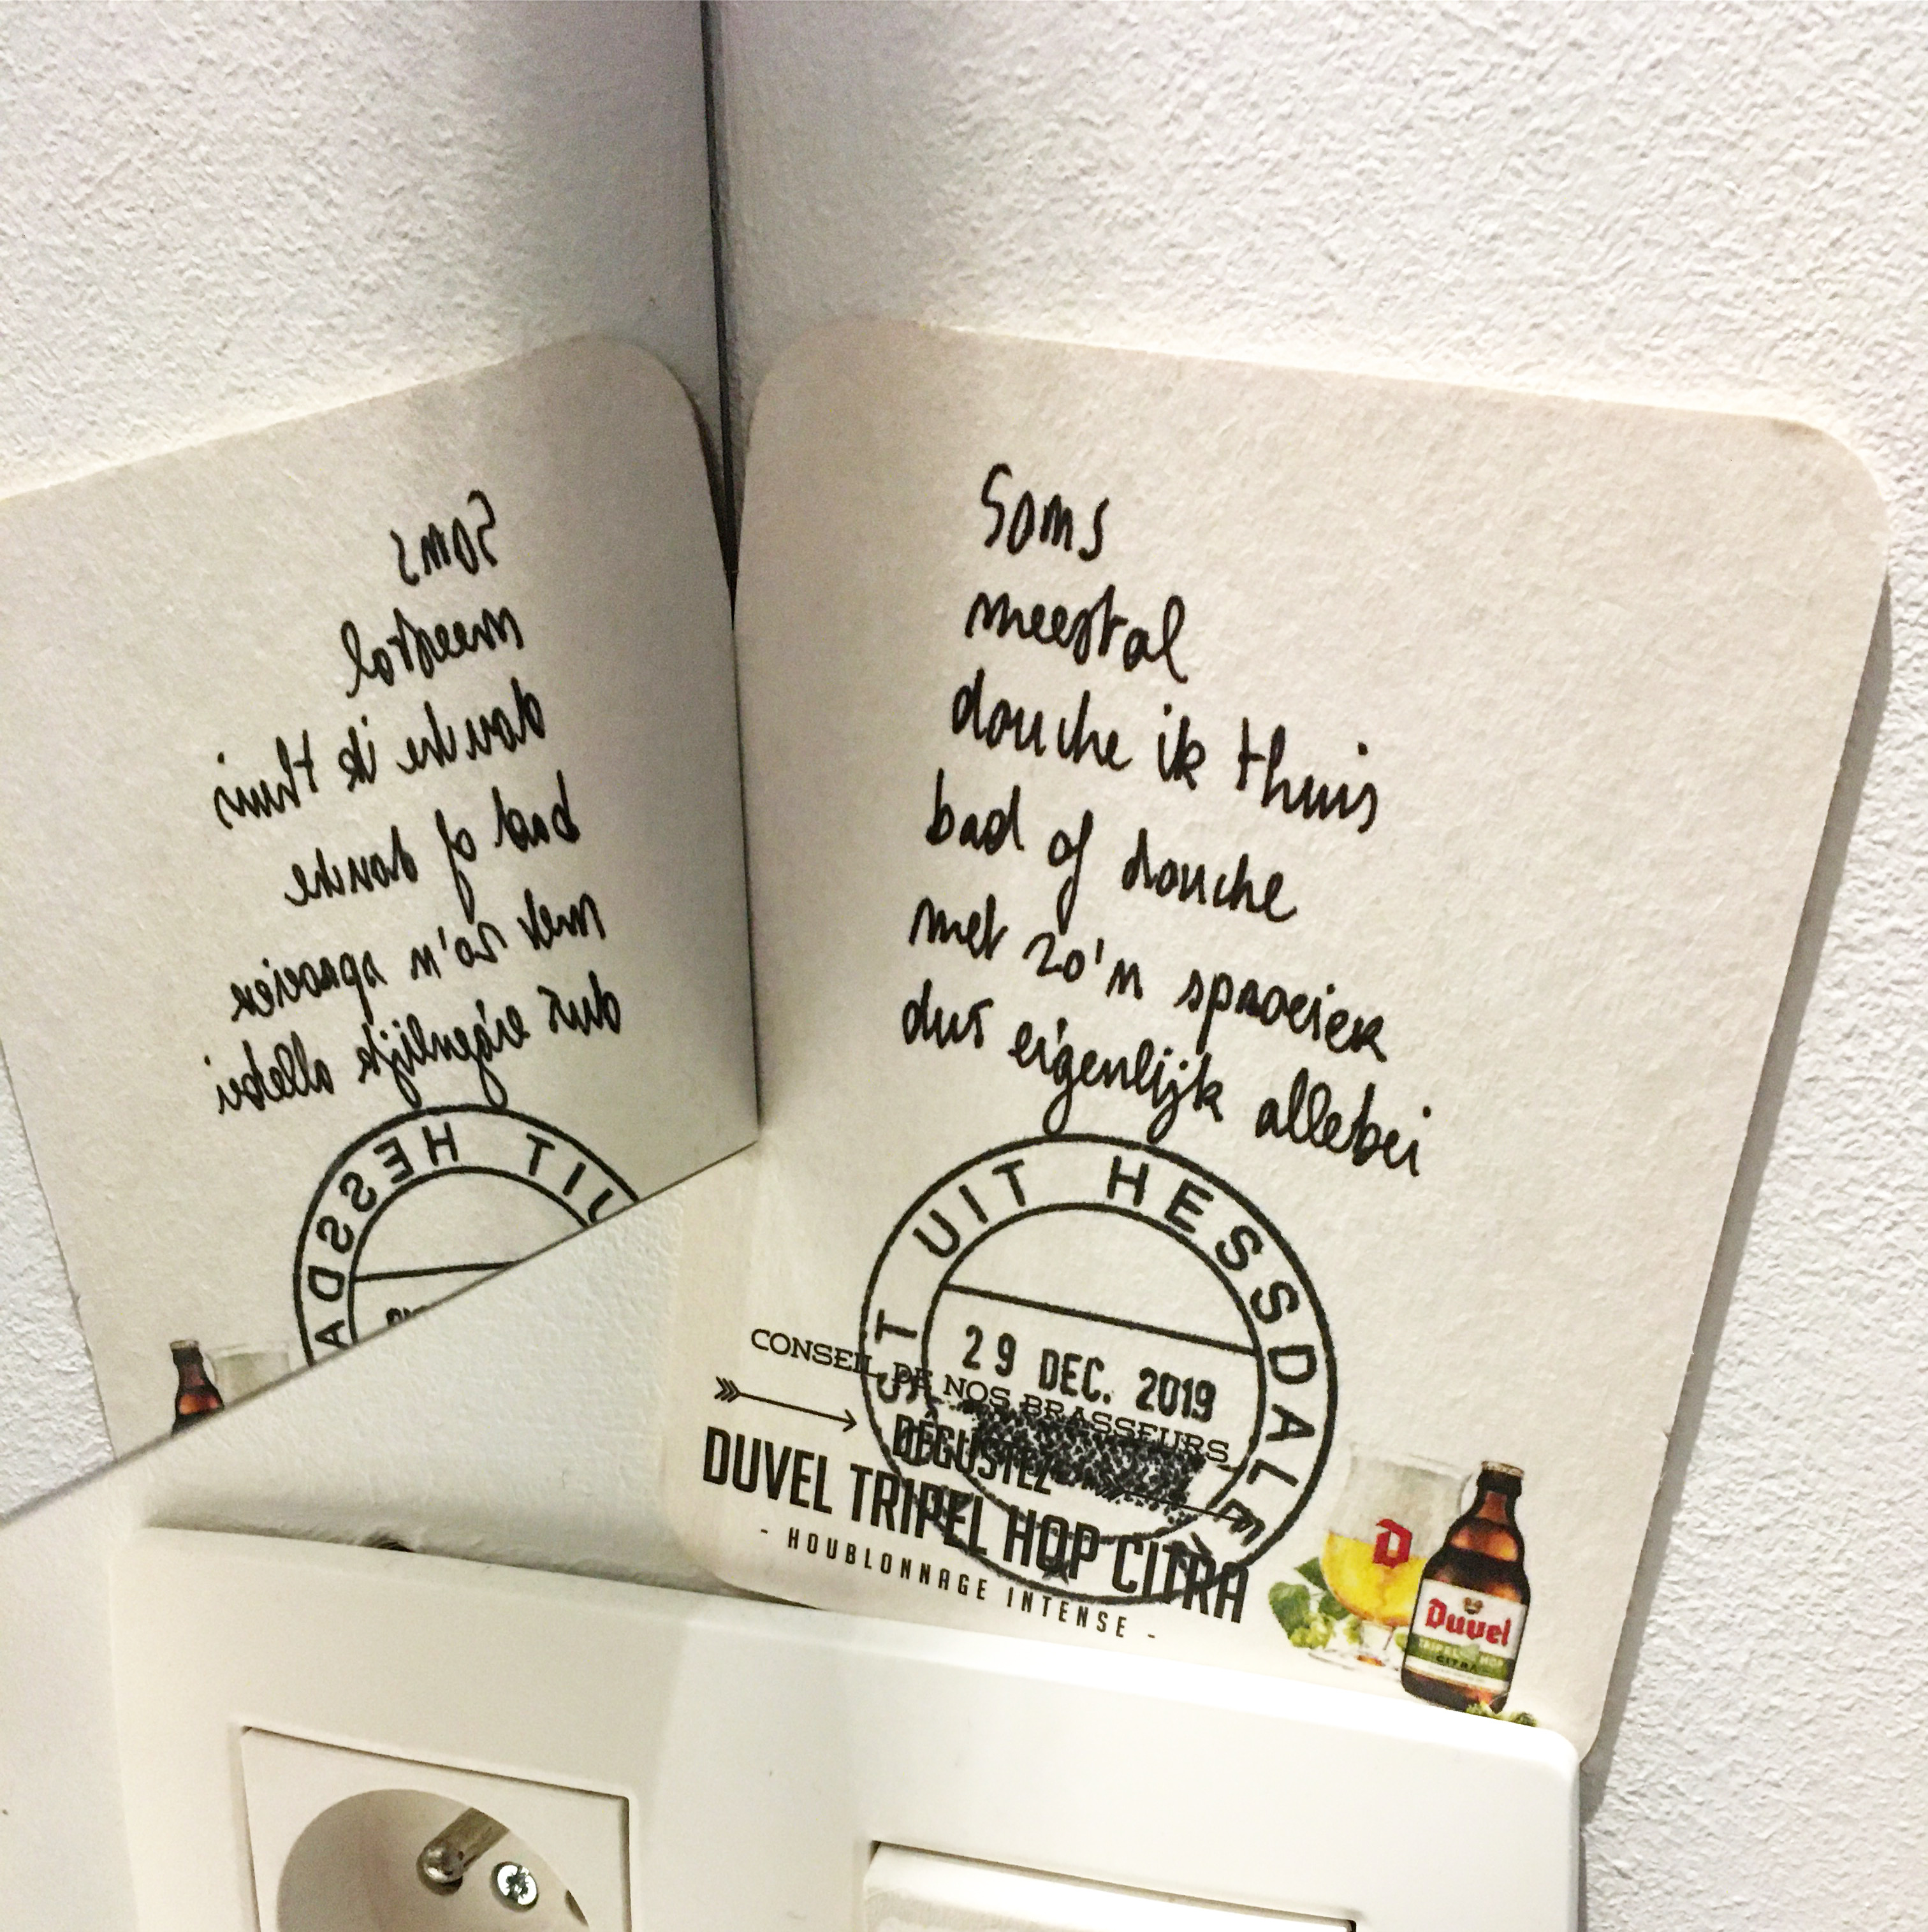 Soms
meestal
douche ik thuis
bad of douche
met zo'n sproeier
dus eigenlijk allebei
UIT HESSDALE
29 DEC. 2019
CONSEIL DE NOS BRASSEURS
DÉGUSTEZ
DUVEL TRIPEL HOP CITRA
- HOUBLONNAGE INTENSE -
D
Duvel
TRIPEL HOP
CITRA